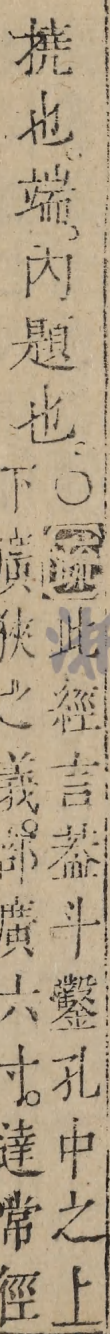 撓也。端。內題也。○疏此經言葢斗鑿孔中之上
下廣狹之義。部廣六寸。達常徑